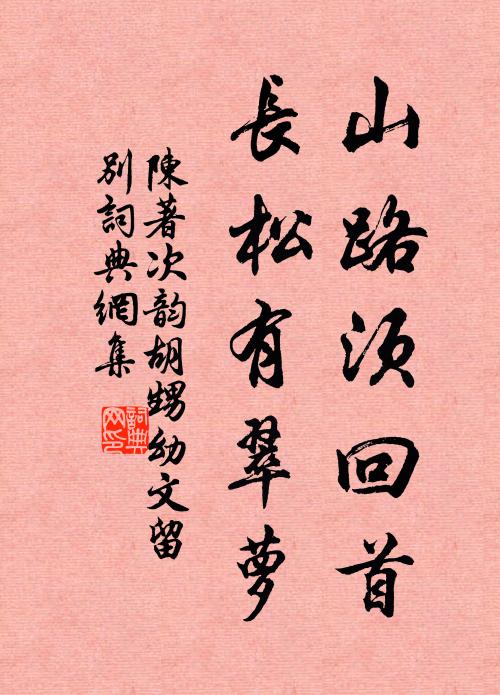 山路須回首
長松有翠萝
陳著次韵胡甥幼文留
別詞典網集
詞典网印